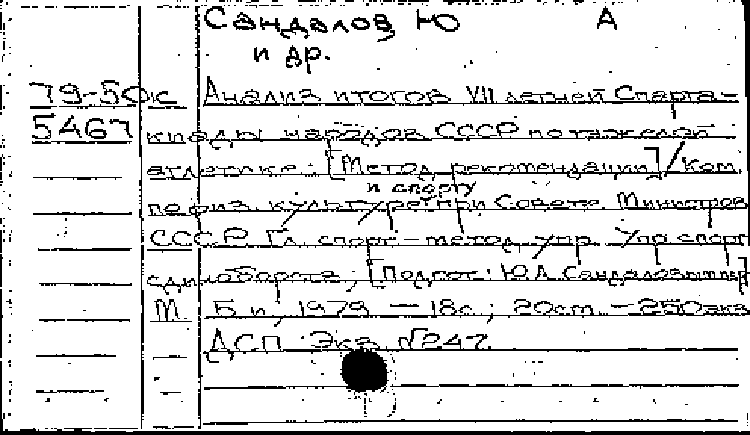 Сандалов Ю А
и др.
79-50к Анализ итогов VII летней Спарта-
5467 киады народов СССР по тяжелой
атлетике: [Метод рекомендации] / Ком.
и спорту
по физ. культуре при Совете Министров
СССР. Гл. спорт.-метод. упр. Упр. спорт
единоборств; [Подгот.: Ю.А. Сандаловым и др.]
М. Б. и, 1979. — 18с.; 20см. — 250экз
ДСП. Экз. №247